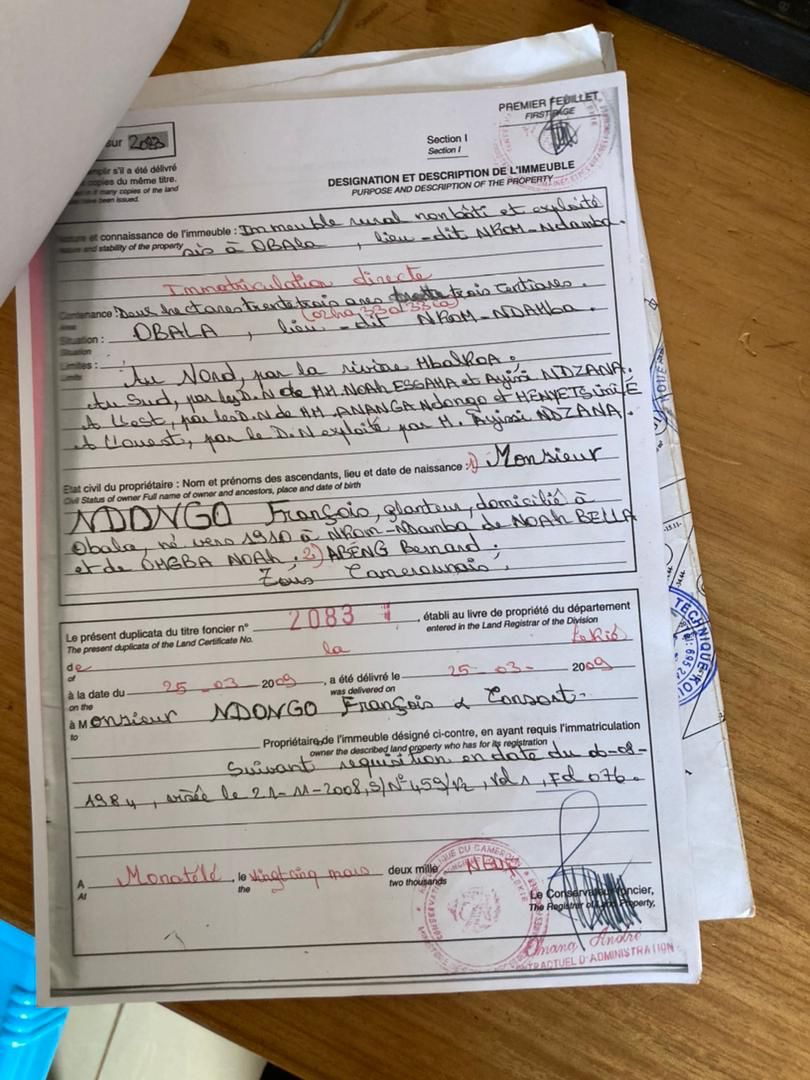 PREMIER FEUILLET
FIRST PAGE
sur 2083
Section I
Section I
emplir s'il a été délivré
copies du même titre.
in it many copies of the land
have been issued.
DESIGNATION ET DESCRIPTION DE L'IMMEUBLE
PURPOSE AND DESCRIPTION OF THE PROPERTY
Nature et connaissance de l'immeuble : Immeuble rural non bâti et exploité
Nature and stability of the property
sis à OBALA, lieu-dit NKOM-Ndamba.
Immatriculation directe
Contenance : Deux hectares trente trois ares trente trois Centiares.
Area
(02ha 33a 33ca)
Situation : OBALA, lieu-dit NKOM-NDAMBA.
Situation
Limites :
Limits
Au Nord, par la rivière
Au Sud, par les D.N de MM. NOAH ESSAMA et Ayissi NDZANA.
A L'est, par les D.N de MM. ANANGA Ndongo et
A L'ouest, par le D.N exploité par M. Ayissi NDZANA.
Etat civil du propriétaire : Nom et prénoms des ascendants, lieu et date de naissance : 1) Monsieur
Civil Status of owner Full name of owner and ancestors, place and date of birth
NDONGO François, planteur, domicilié à
Obala, né vers 1910 à NKom-Ndamba de NOAH BELLA
et de OMGBA NOAH ; 2) ABENG Bernard ;
Tous Camerounais.
Le présent duplicata du titre foncier n° 2083, établi au livre de propriété du département
The present duplicate of the Land Certificate No. entered in the Land Registrar of the Division
de la Lekié
of
à la date du 25-03-2009, a été délivré le 25-03-2009
on the was delivered on
à Monsieur NDONGO François & Consort.
to
Propriétaire de l'immeuble désigné ci-contre, en ayant requis l'immatriculation
owner the described land property who has for its registration
Suivant requisition en date du 06-08-
1984, visée le 21-11-2008, S/N° 459/12, Vol 1, Fol 076.
A Monatélé, le vingt cinq mars deux mille NEUF
At the two thousands
Le Conservateur foncier,
The Registrar of Land Property,
Omang André
CONTRACTUEL D'ADMINISTRATION
TECHNIQUE